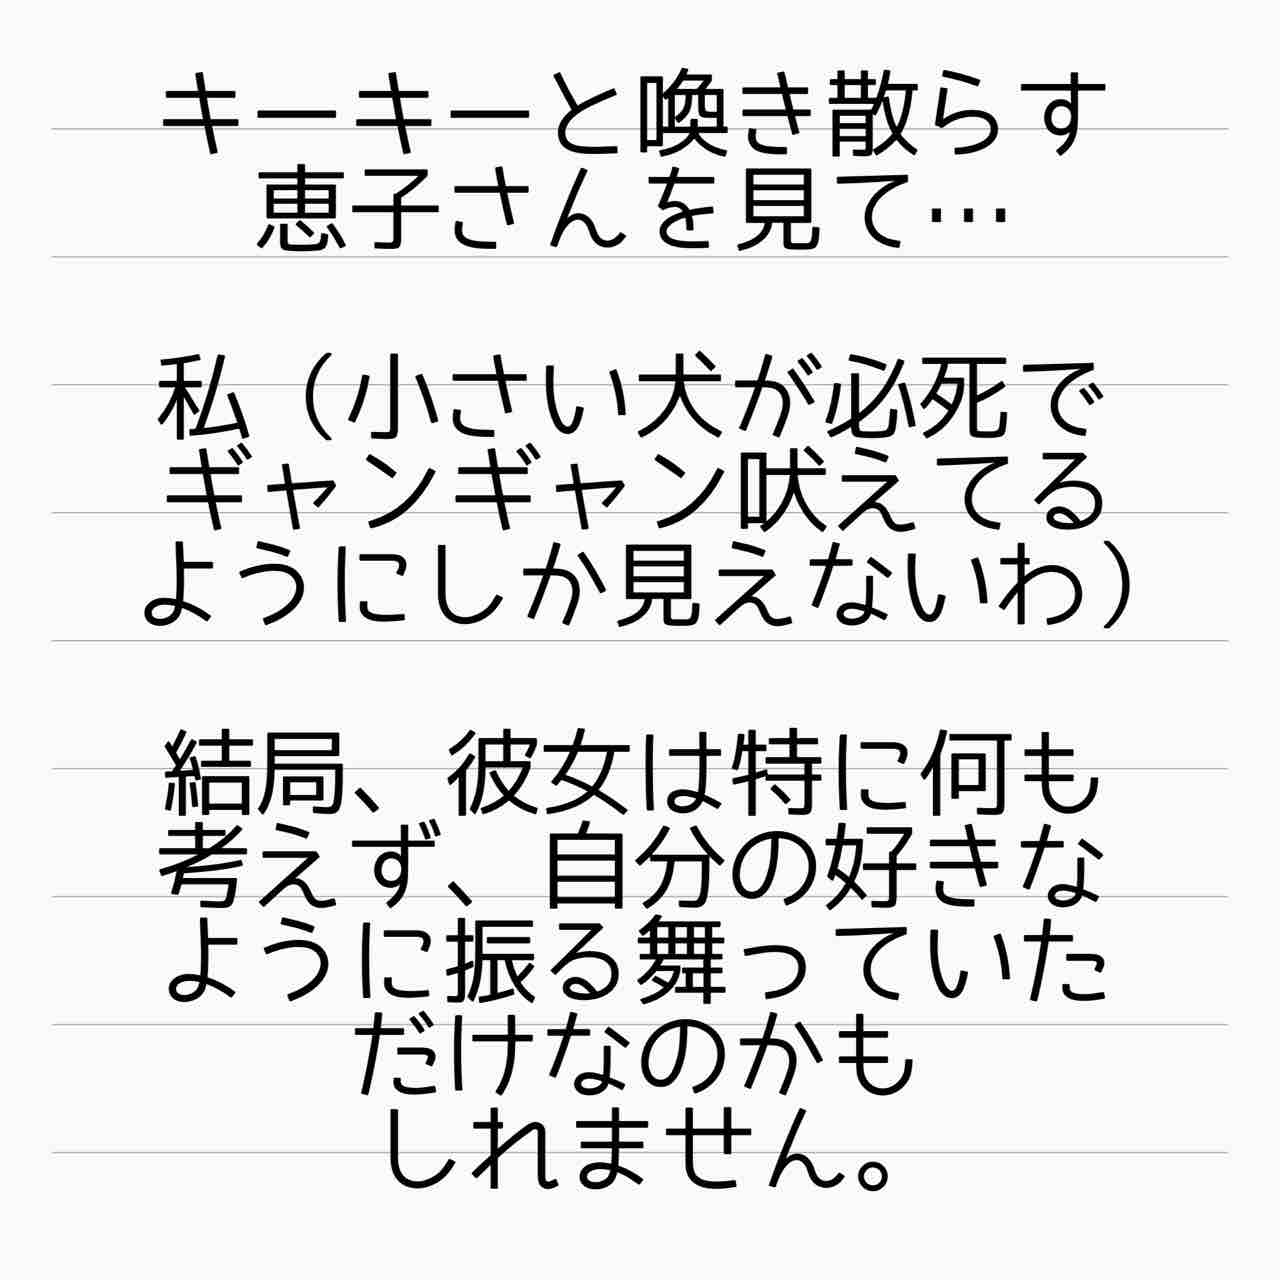 キーキーと喚き散らす
恵子さんを見て…
私（小さい犬が必死で
ギャンギャン吠えてる
ようにしか見えないわ）
結局、彼女は特に何も
考えず、自分の好きな
ように振る舞っていた
だけなのかも
しれません。